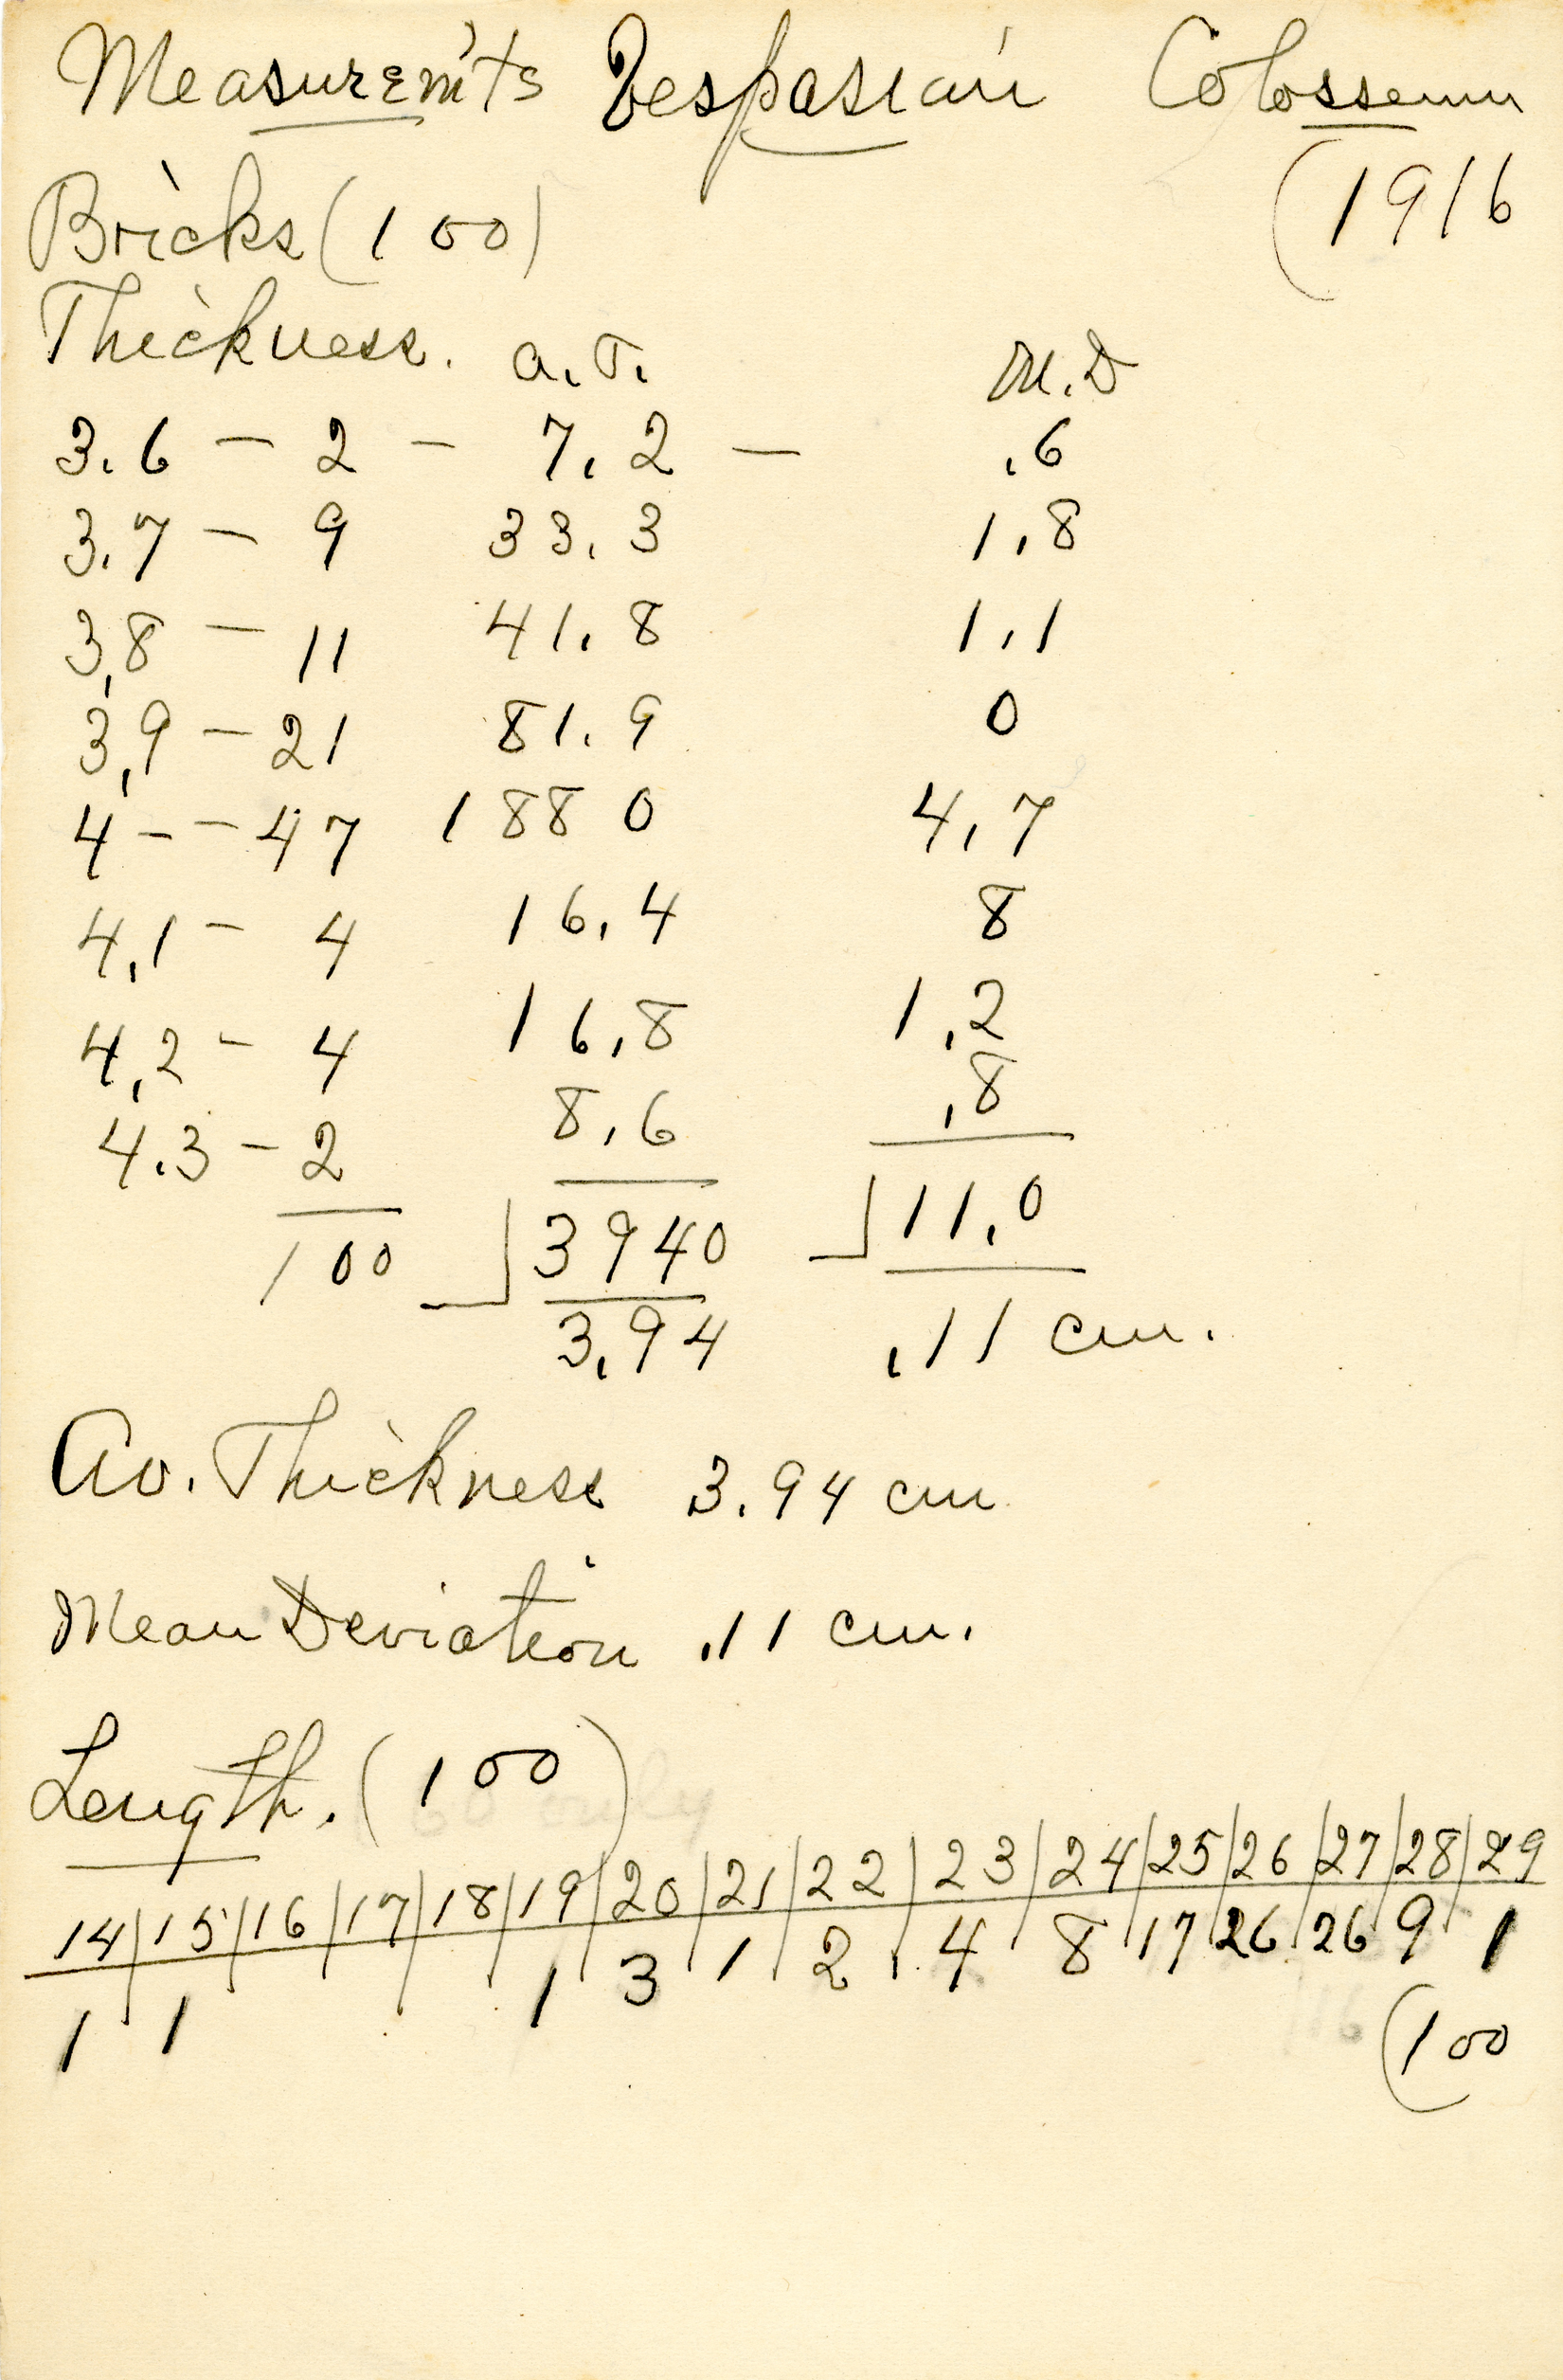 Measurem'ts Vespasian Colosseum
(1916
Bricks (100)
Thickness. a.T. M.D
3.6 - 2 - 7.2 - .6
3.7 - 9 33.3 1.8
3.8 - 11 41.8 1.1
3.9 - 21 81.9 0
4 - - 47 188 0 4.7
4.1 - 4 16.4 8
4.2 - 4 16.8 1.2
4.3 - 2 8.6 .8
100 3940 11.0
3.94 .11 cm.
Av. Thickness 3.94 cm
Mean Deviation .11 cm.
Length. (100)
14/15/16/17/18/19/20/21/22/23/24/25/26/27/28/29
1 1 1 3 1 2 4 8 17 26 26 9 1
(100